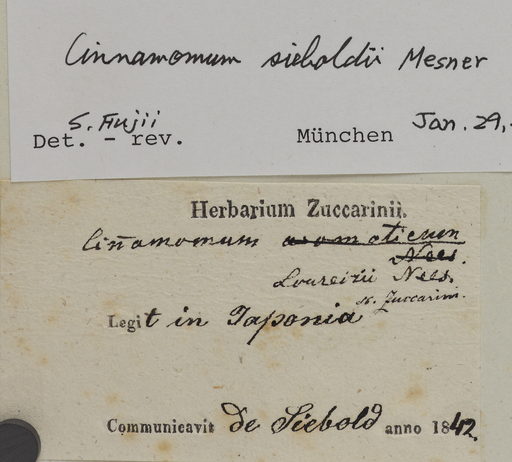 Cinnamomum sieboldii Mesner
S. Fujii
Det. - rev. München Jan. 29,
Herbarium Zuccarinii.
Cin̄amomum aromaticum
Nees.
Loureirii Nees.
Zuccarini.
Legit in Japonia
Communicavit de Siebold anno 1842.